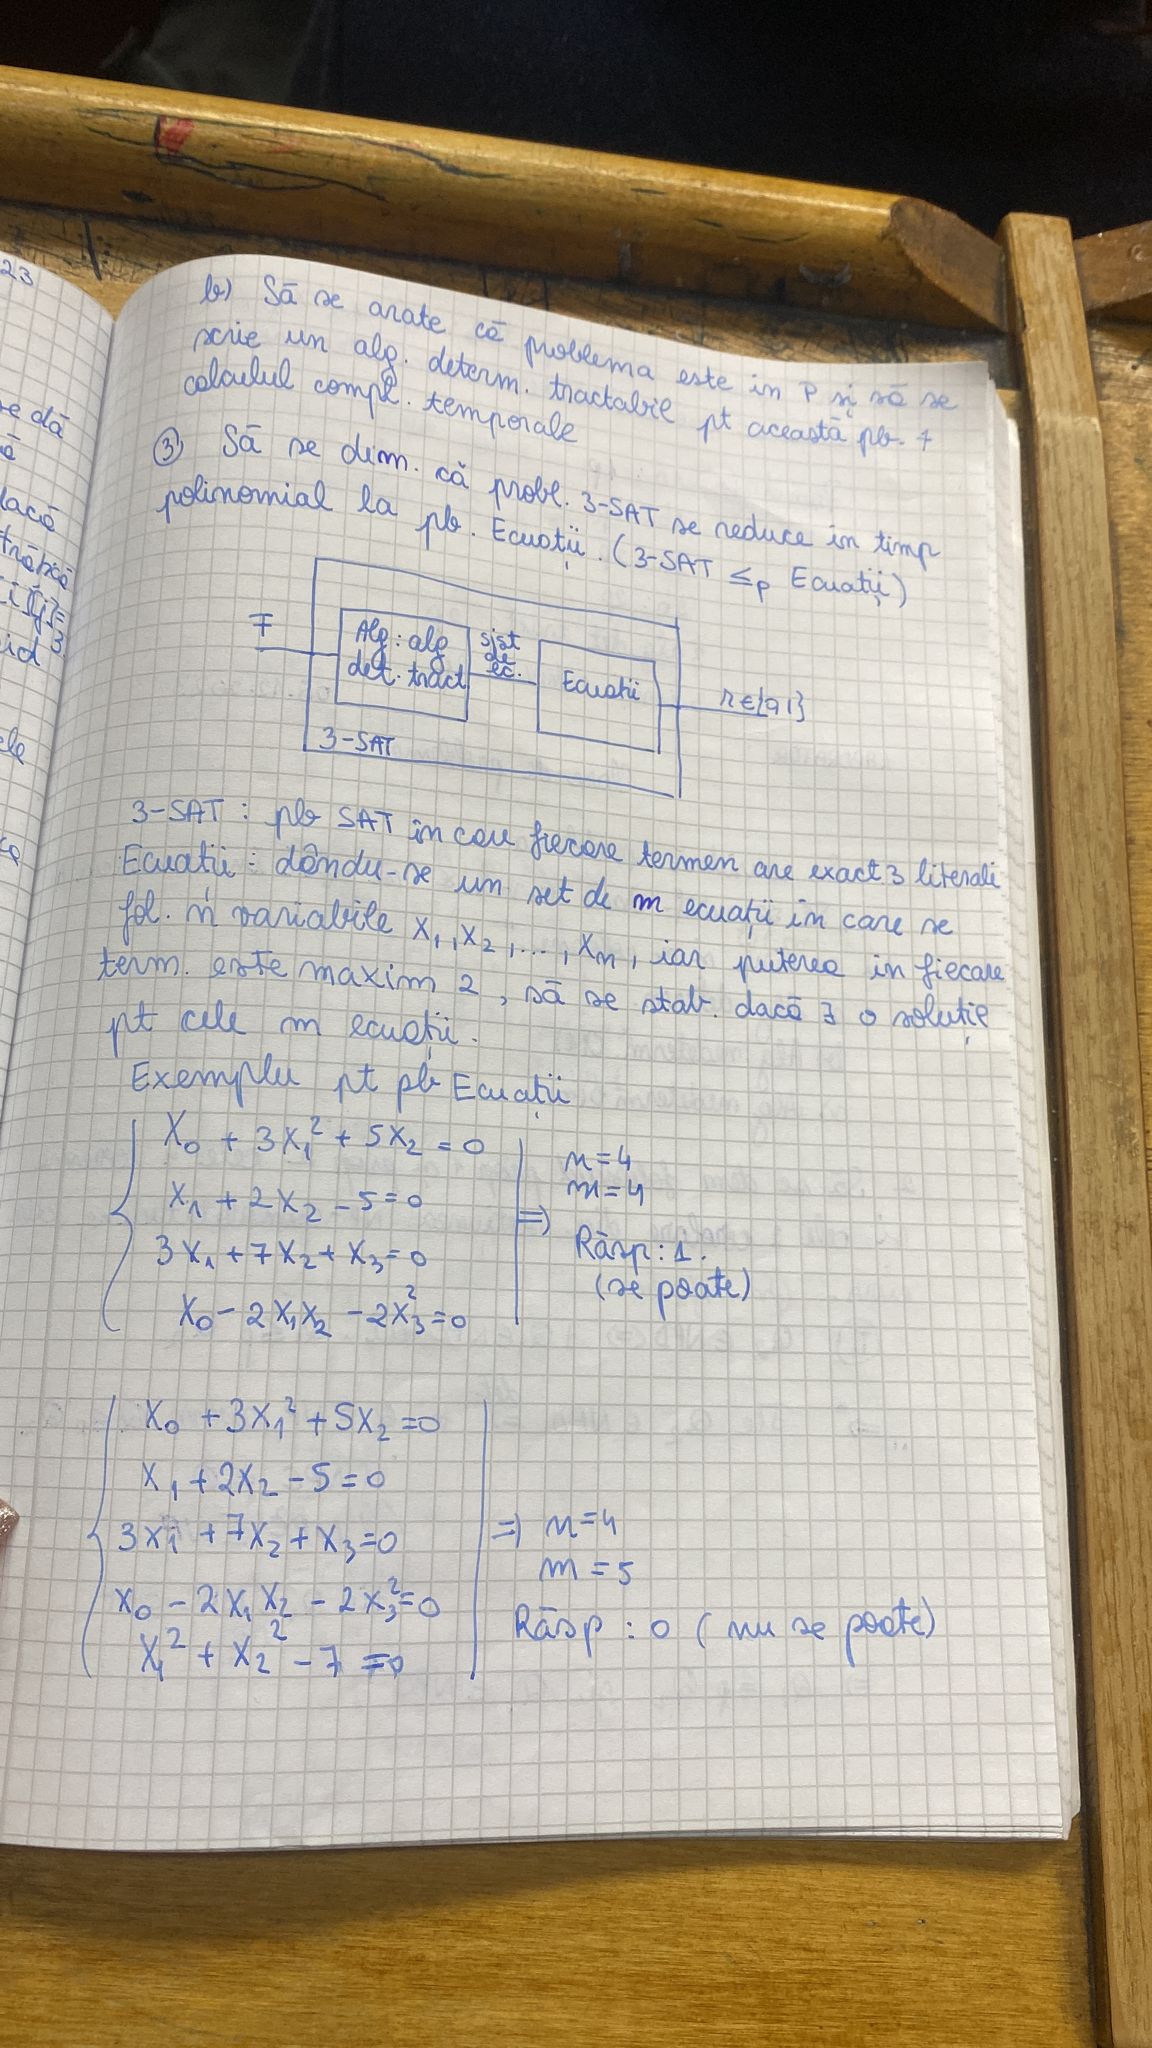 23
b) Să se arate că problema este in P și să se
scrie un alg. determ. tractabil pt această pb. +
calculul compl. temporale
③ Să se dem. că probl. 3-SAT se reduce in timp
polinomial la pb. Ecuații. (3-SAT ≤p Ecuații)
F
Alg: alg
det. tract
sist
de
ec.
Ecuatii
r∈{0,1}
3-SAT
3-SAT : pb SAT in care fiecare termen are exact 3 literali
Ecuatii : dându-se un set de m ecuații in care se
fol. n variabile x₁, x₂, ..., xₙ, iar puterea in fiecare
term. este maxim 2, să se stab. dacă ∃ o soluție
pt cele m ecuații.
Exemplu pt pb Ecuații
x₀ + 3x₁² + 5x₂ = 0
x₁ + 2x₂ - 5 = 0
3x₁ + 7x₂ + x₃ = 0
x₀ - 2x₁x₂ - 2x₃² = 0
=> n=4
m=4
Răsp: 1.
(se poate)
x₀ + 3x₁² + 5x₂ = 0
x₁ + 2x₂ - 5 = 0
3x₁ + 7x₂ + x₃ = 0
x₀ - 2x₁x₂ - 2x₃² = 0
x₁² + x₂² - 7 = 0
=> n=4
m = 5
Răsp : 0 ( nu se poate)